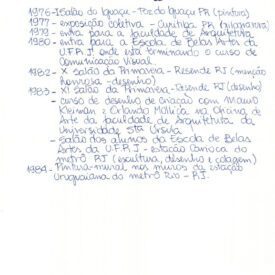 1976 - I Salão do Iguaçu - Foz do Iguaçu PR (pintura)
1977 - exposição coletiva - Curitiba PR (xilogravura)
1979 - entra para a faculdade de Arquitetura
1980 - entra para a Escola de Belas Artes da
U.F.R.J. onde está terminando o curso de
Comunicação Visual
1982 - X Salão da Primavera - Resende RJ (menção
honrosa - desenho)
1983 - XI Salão da Primavera - Resende RJ (desenho)
- curso de desenho de criação com Mauro
Kleiman e Orlando Mollica na Oficina de
Arte da faculdade de Arquitetura da
Universidade Sta Úrsula
- Salão dos alunos da Escola de Belas
Artes da U.F.R.J - estação Carioca do
metrô RJ (escultura, desenho e colagem)
1984 - Pintura-mural nos muros da estação
Uruguaiana do metrô Rio - RJ.